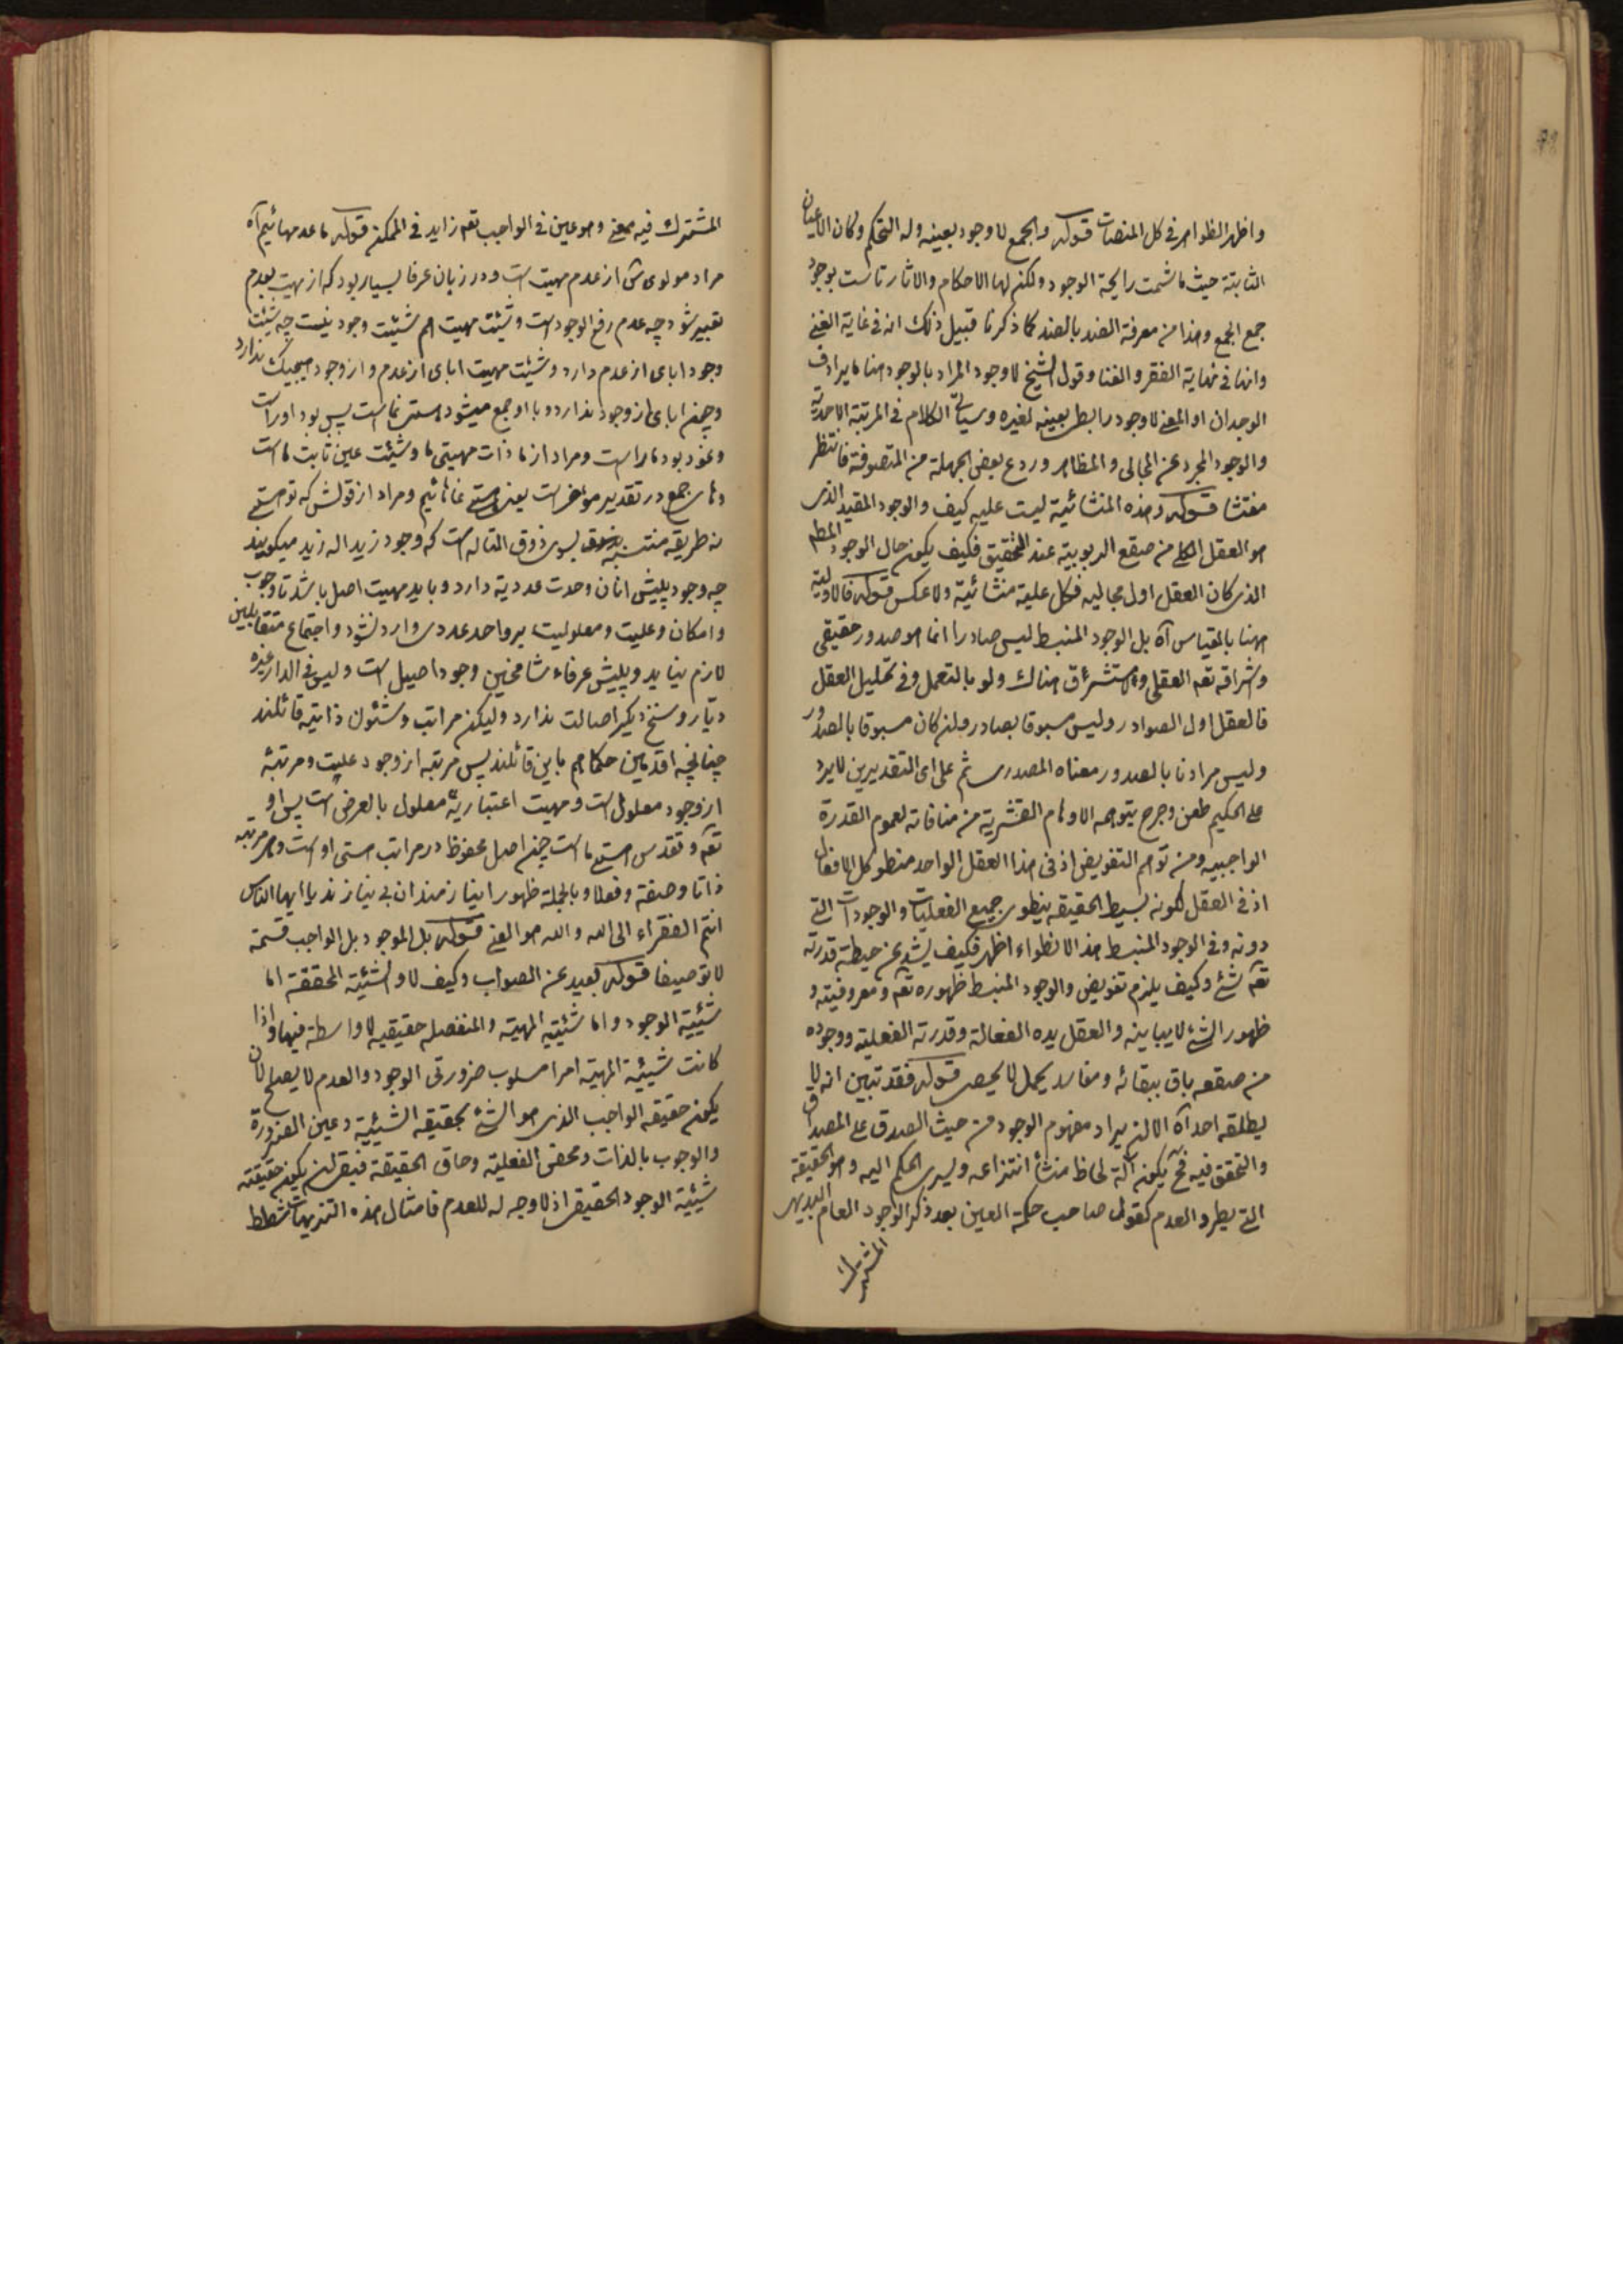 واظهر الظواهر فی کل المنصات قوله والجمع لا وجود بعینه وله التحکم وکان الاعیان
الثابتة حیث ما شمت رایحة الوجود ولکن لها الاحکام والاثار بوجود
جمع الجمع وهذا من معرفة الضد بالضد کما ذکرنا قبیل ذلک انه فی غایة الغنی
وانها فی نهایة الفقر والفنا وقول الشیخ لا وجود المراد بالوجود هنا ما یرادف
الوجدان او المعنی لا وجود رابطی بعینه لغیره وسیاتی الکلام فی المرتبة الاحدیة
والوجود المجرد عن المجالی والمظاهر وردع بعض الجهلة من المتصوفة فانتظر
مفتشا قوله وهذه المنشائیة لیست علیه کیف والوجود المقید الذی
هو العقل الکلی من صقع الربوبیة عند التحقیق فکیف یکون حال الوجود المطلق
الذی کان العقل اول مجالیه فکل علیة منشائیة ولا عکس قوله فالاولیة
ههنا بالقیاس آه بل الوجود المنبسط لیس صادرا انما هو صدور حقیقی
واشراقه تعالی العقلی والاستشراق هناک ولو بالتعمل وفی تحلیل العقل
فالعقل اول الصوادر ولیس مسبوقا بصادر وان کان مسبوقا بالصدور
ولیس مرادنا بالصدور معناه المصدری ثم علی ای التقدیرین لا یرد
علی الحکیم طعن وجرح یتوهمه الاوهام القشریة من منافاته لعموم القدرة
الواجبیه ومن توهم التفویض اذ فی هذا العقل الواحد منطو کل الافعال
اذ فی العقل لکونه بسیط الحقیقه ینطوی جمیع الفعلیات والوجودات التی
دونه وفی الوجود المنبسط هذا الانطواء اظهر فکیف یشذ عن حیطة قدرته
تعالی شئ وکیف یلزم تفویض والوجود المنبسط ظهوره تعالی ومعروفیته و
ظهور الشئ لا یباینه والعقل یده الفعالة وقدرته الفعلیة ووجوده
من صقعه باق ببقائه ومفاسد یحمل لا یحصی قوله فقد تبین انه لا
یطلقه احد آه الا ان یراد مفهوم الوجود من حیث الصدق علی المصداق
والتحقق فیه فح یکون آلة لحاظ منشأ انتزاعه ویسری الحکم الیه وهو الحقیقة
التی یطرد العدم کقول صاحب حکمة العین بعد ذکر الوجود العام البدیهی
المشترک
المشترک فیه معنی وهو عین فی الواجب تعالی زاید فی الممکن قوله ما عدمهائیم آه
مراد مولوی از عدم مهیت است ودر زبان عرفا بسیار بود که از مهیت بعدم
تعبیر شود چه عدم رفع الوجود است وشیئیت مهیت هم شیئیت وجود نیست چه شیئیت
وجود ابای از عدم دارد وشیئیت مهیت ابای از عدم واز وجود هیچیک ندارد
وچون ابای از وجود ندارد وبا او جمع میشود هستی نماست پس بود اوراست
ونمود بود ماراست ومراد از ما ذات مهیتی ما وشیئیت عین ثابت ماست
وما جمع در تقدیر مؤخر است یعنی هستی نمامائیم ومراد از قولش که تو هستی
نه طریقه منتسبه بسوی ذوق المتاله است که وجود زید اله زید میگویند
چه وجود پیش انان وحدت عددیة دارد وباید مهیت اصل باشد تا وجوب
وامکان وعلیت ومعلولیت بر واحد عددی وارد نشود واجتماع متقابلین
لازم نیاید وپیش عرفاء شامخین وجود اصیل است ولیس فی الدار غیره
دیار وسنخ دیگر اصالت ندارد ولیکن مراتب وشئون ذاتیه قائلند
چنانچه اقدمین حکما هم باین قائلند پس مرتبه از وجود علیت ومرتبه
از وجود معلول است ومهیت اعتباریه معلول بالعرض است پس او
تعالی وتقدس هستی ماست چون اصل محفوظ در مراتب هستی اوست وهر مرتبه
ذاتا وصفة وفعلا وبالجملة ظهورا نیازمندان بی نیازند یا ایها الناس
انتم الفقراء الی الله والله هو الغنی قوله بل الموجود بل الواجب قسمة
لا توصیفا قوله بعید عن الصواب وکیف لا والشیئیة المحققة اما
شیئیة الوجود واما شیئیة المهیة والمنفصله حقیقیه لا واسطة فیها واذا
کانت شیئیة المهیة امرا مسلوب ضرورتی الوجود والعدم لا یصلح لان
یکون حقیقة الواجب الذی هو الشئ بحقیقة الشیئیة وعین الضرورة
والوجوب بالذات ومحض الفعلیة وحاق الحقیقة فبقی ان یکون حقیقته
شیئیة الوجود الحقیقی اذ لا وجه له للعدم فامثال هذه التنزیهات شطط